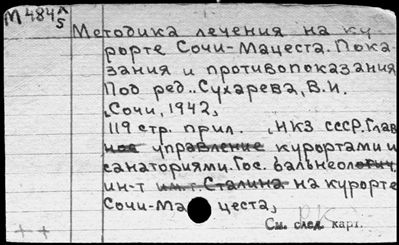 М484 А/5
Методика лечения на ку-
рорте Сочи-Мацеста. Пока-
зания и противопоказания
Под ред.. Сухарева, В.И.
Сочи, 1942,
119 стр. прил. , НКЗ СССР. Глав
ное управление курортами и
санаториями. Гос. бальнеологич.
ин-т им. т. Сталина на курорте
Сочи-Мацеста,
См. след. карт.